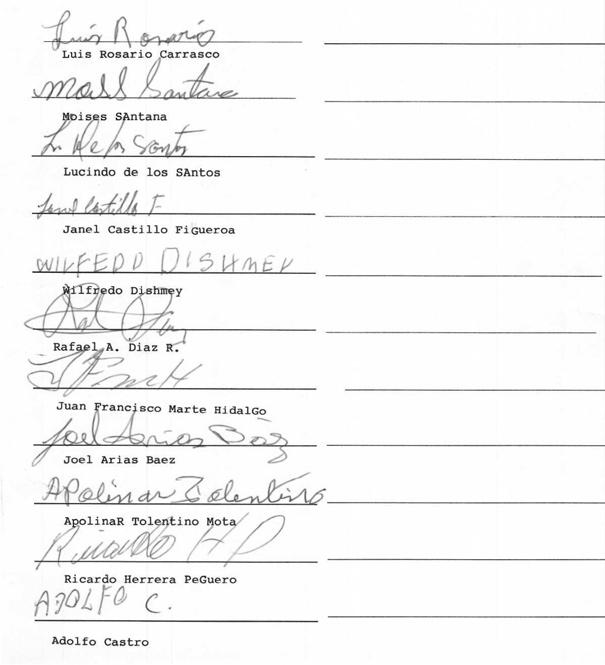 Luis Rosario
Luis Rosario Carrasco
Santana
Moises SAntana
De los Santos
Lucindo de los SAntos
Janel Castillo F
Janel Castillo Figueroa
WILFEDD DISHMEY
Wilfredo Dishmey
Rafael A. Diaz R.
Juan Francisco Marte HidalGo
Joel Arias Báez
Joel Arias Baez
APolinar Tolentino
ApolinaR Tolentino Mota
Ricardo H P
Ricardo Herrera PeGuero
ADOLFO C.
Adolfo Castro